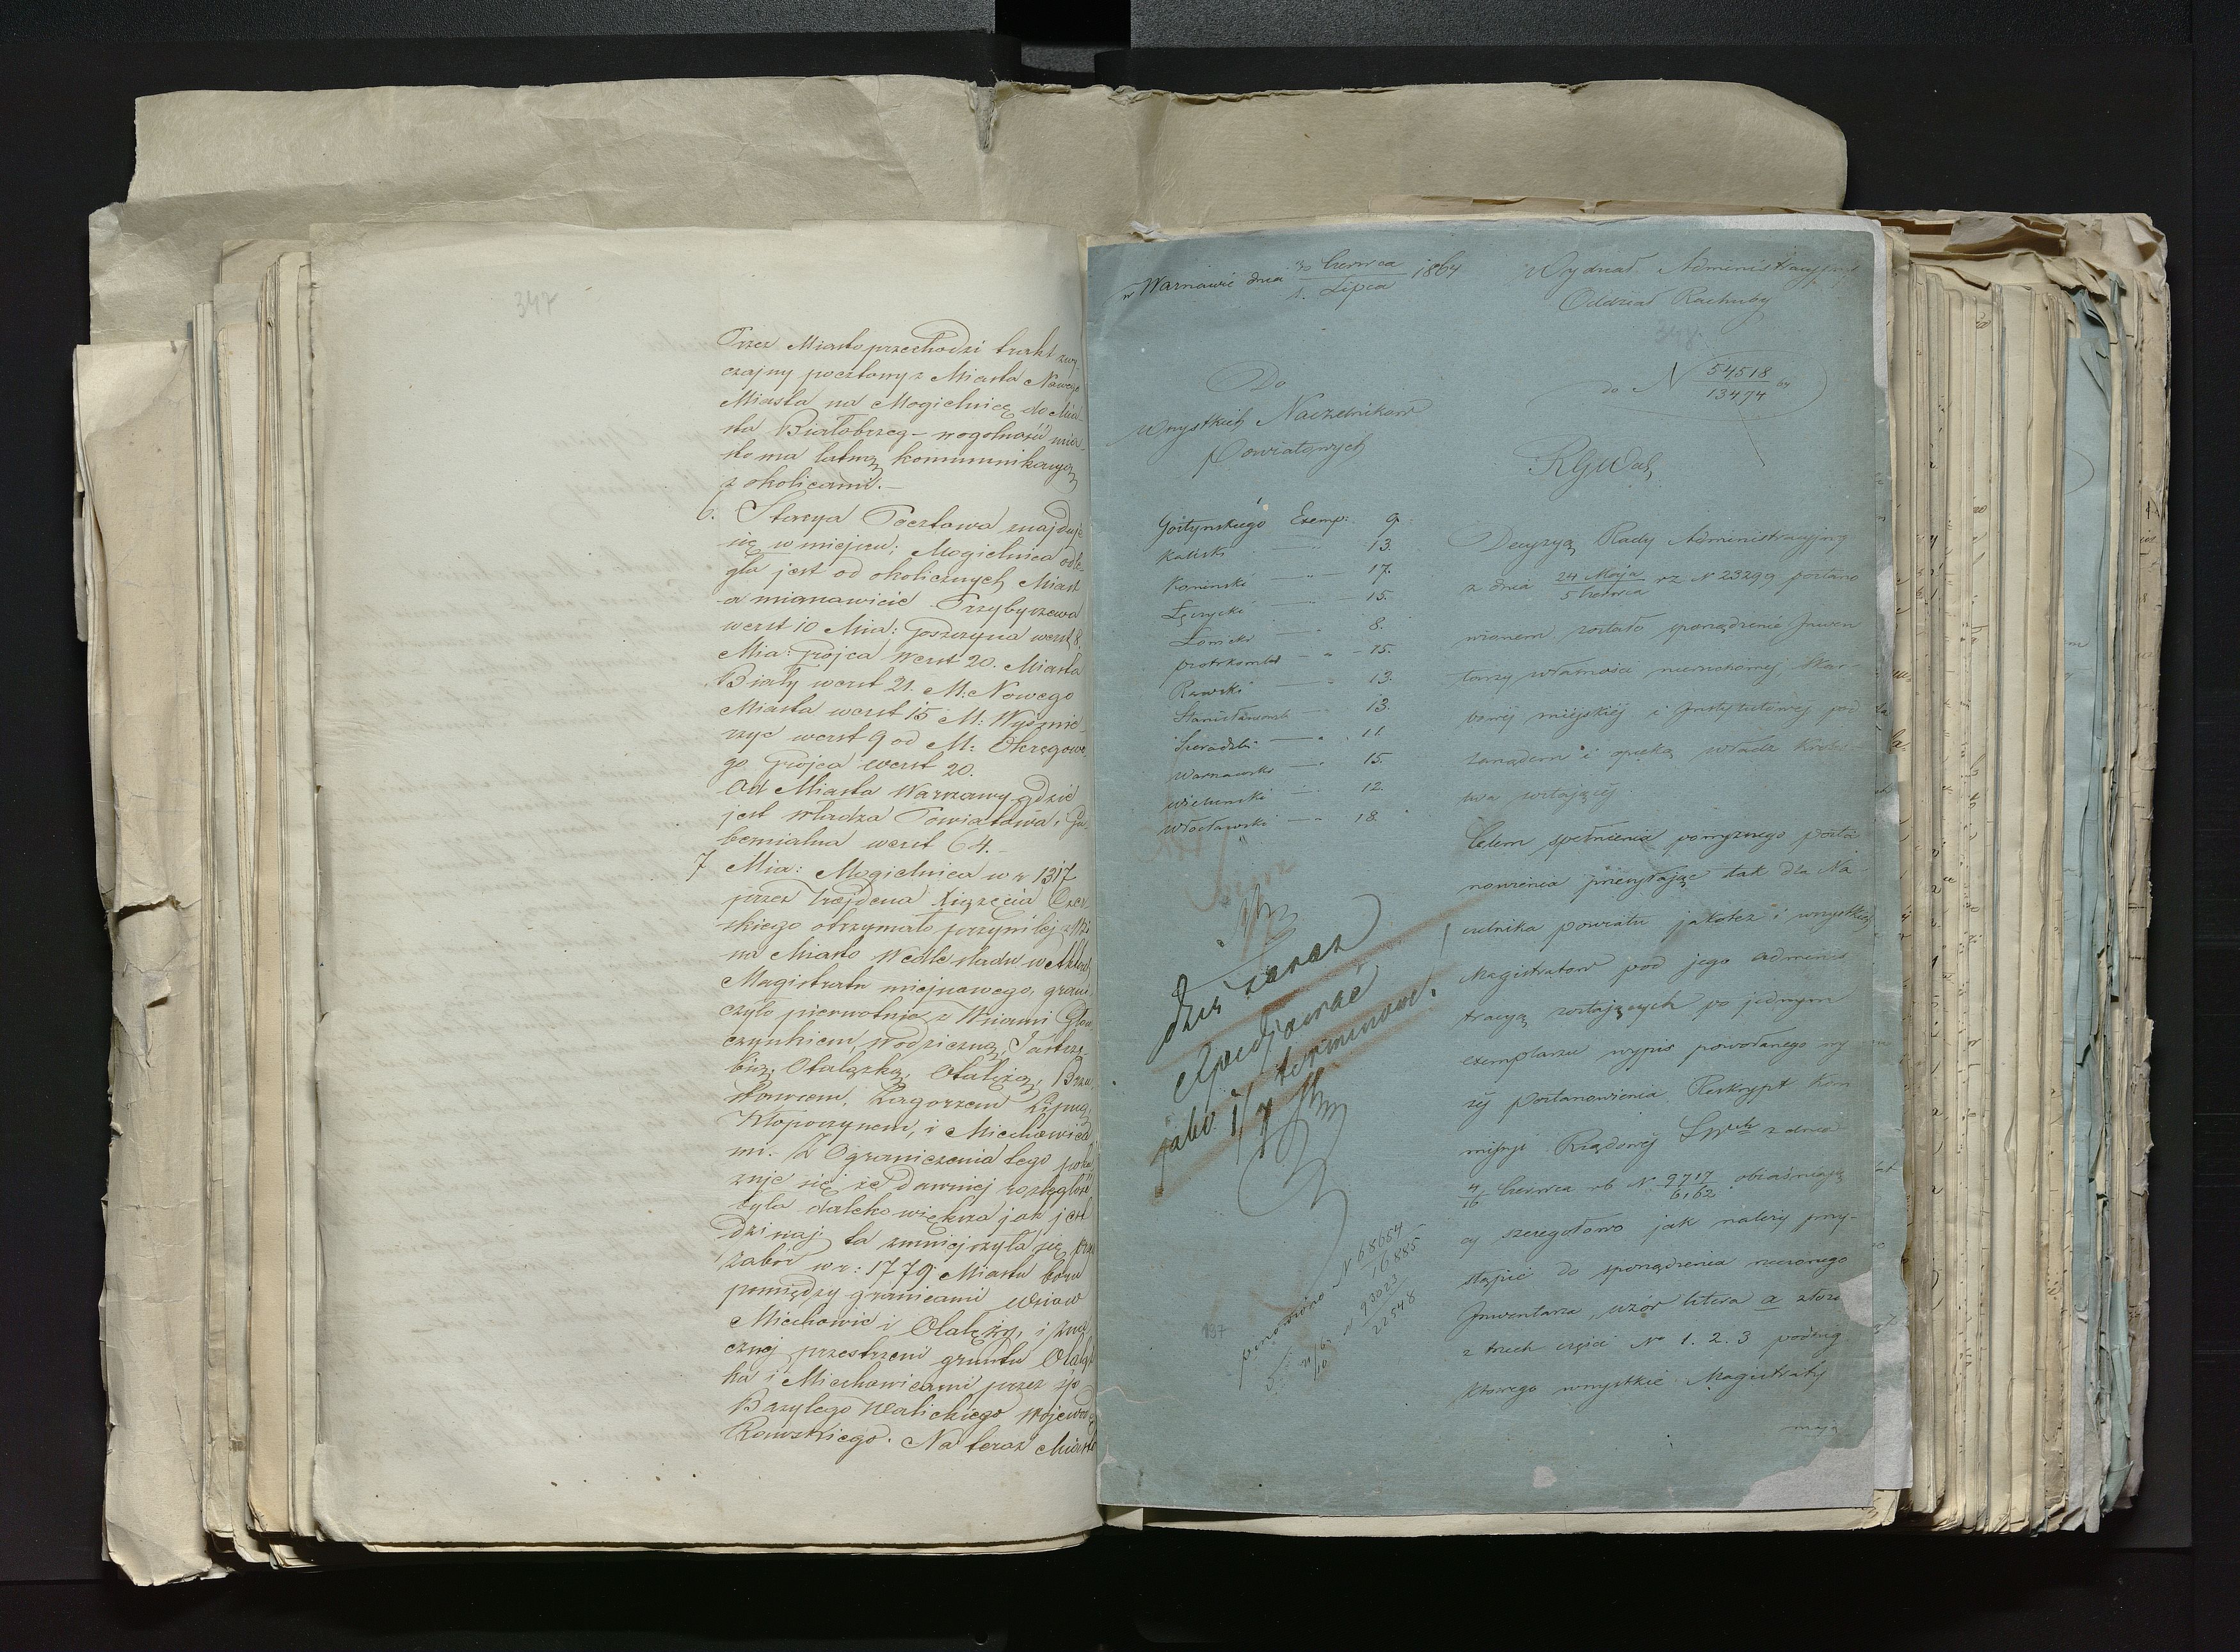 347
Przez Miasto przechodzi trakt zwy
czajny pocztowy z Miasta Nowego
Miasta na Mogielnicę do Mia
sta Białobrzeg – wogolności mia
sto ma łatwą kommunikacyą
z okolicami. –
6. Stacya Pocztowa znajduje
się w miejscu; Mogielnica odle
gła jest od okolicznych Miast
a mianowicie Przybyszewa
werst 10 Mia: Goszczyna werst 8.
Mia: Grójca werst 20. Miasta
Biały werst 21. M: Nowego
Miasta werst 15 M: Wyśmie
rzyc werst 9 od M: Okręgowe
go Grójca werst 20.
Od Miasta Warszawy gdzie
jest władza Powiatowa i Gu
bernialna werst 64. –
7 Mia: Mogielnica w r 1317
przez Trojdena Xiążęcia Czer
skiego otrzymało przywilej z Wsi
na Miasto Wedle śladu w Aktach
Magistratu miejscowego, grani
czyło pierwotnie z Wsiami Głow
czynkiem, Wodziczną,
Otalązką, Otalążą,
Zagorzem
Kłopoczynem, i Miechowica
mi. Z Ograniczenia tego poka
zuje się że dawniej rozległość
była daleko większa jak jest
dzisiaj, ta zmniejszyła się przez
zabór w r: 1779 Miastu boru
pomiędzy granicami wsiow
Miechowic i Otalęży, i zna
cznej przestrzeni gruntu Otalęż
ka i Miechowicami przez śp
Bazylego Walickiego Wojewodę
Rawskiego. Na teraz Miasto
w Warszawie dnia 30 Czerwca / Lipca 1864
Wydział Administracyjny
Oddział Rachuby
348
Do
Wszystkich Naczelników
Powiatowych
do N 54518/13474 64
RGWar
Gostynskiego Exemp: 9
Kaliski — " — 13.
Koninski — " — 17.
Łęczycki — " — 15.
Łowicki — " 8.
Piotrkowski — " — 15.
Rawski — " 13.
Stanisławowski — " 13.
Sieradzki — " 11.
Warszawski — " 15.
Wielunski — " 12.
Włocławski — " 18.
Decyzyą Rady Administracyjnej
z dnia 24 Maja / 5 Czerwca rz N 23299 postano
wionem zostało sporządzenie Inwen
tarzy własności nieruchomej, Skar
bowej miejskiej i Instytutowej pod
zarządem i opieką władz Królest
wa zostającej
Celem spełnienia powyższego posta
nowienia przesyłając tak dla Na
czelnika powiatu jakoteż i wszystkich
Magistratow pod jego adminis
tracyą zostających po jednym
exemplarzu wypis powołanego wy
żej Postanowienia, Reskrypt Kom
missyi Rządowej z dnia
4/16 Czerwca rb N 9717/6162 obiaśniają
cy szczegółowo jak należy przy
stąpić do sporządzenia rzeczonego
Inwentarza, wzór litera a złożo
z trzech części No 1. 2. 3 podług
którego wszystkie Magistraty
mają
dziś zaraz
expedjować
jako 1/7 terminowe.
ponowiono N 68684/16885
N 93023/22548
197